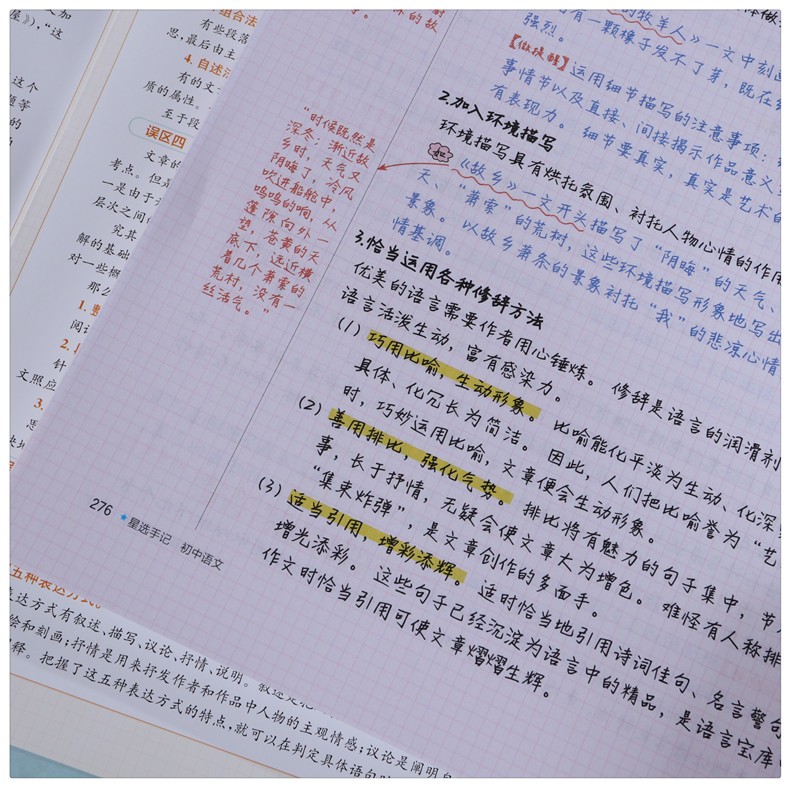 组合法
有些段落
思,最后由主
4. 自述法
有的文
质的属性。
至于段
误区四
文章的
考点。但
一是由于
层次之间
究其
解的基础
对一些概
那么
1.
阅读
2.
针
文照应
3.
这个
题等
的
的牧羊人》一文中刻画
有一颗橡子发不了芽,既在
强烈。
【做提醒】运用细节描写的注意事项:
事情节以及直接、间接揭示作品意义
有表现力。细节要真实,真实是艺术的
2.加入环境描写
环境描写具有烘托氛围、衬托人物心情的作用
如
《故乡》一文开头描写了“阴晦”的天气、
天、“萧索”的荒树,这些环境描写形象地写出
景象。以故乡萧条的景象衬托“我”的悲凉心情
情基调。
“时候既然是
深冬;渐近故
乡时,天气又
阴晦了,冷风
吹进船舱中,
呜呜的响,从
篷隙向外一
望,苍黄的天
底下,远近横
着几个萧索的
荒村,没有一
丝活气。”
3.恰当运用各种修辞方法
优美的语言需要作者用心锤炼。修辞是语言的润滑剂
语言活泼生动,富有感染力。
(1)巧用比喻,生动形象。比喻能化平淡为生动、化深
具体、化冗长为简洁。因此,人们把比喻誉为“艺
时,巧妙运用比喻,文章便会生动形象。
(2)善用排比,强化气势。排比将有魅力的句子集中,节
事,长于抒情,无疑会使文章大为增色。难怪有人称排
“集束炸弹”,是文章创作的多面手。
(3)适当引用,增彩添辉。适时恰当地引用诗词佳句、名言警句
增光添彩。这些句子已经沉淀为语言中的精品,是语言宝库
作文时恰当引用可使文章熠熠生辉。
276 ★星选手记 初中语文
五种表达方式。
表达方式有叙述、描写、议论、抒情、说明。叙述是
绘和刻画;抒情是用来抒发作者和作品中人物的主观情感;议论是阐明自
释。把握了这五种表达方式的特点,就可以在判定具体语句时